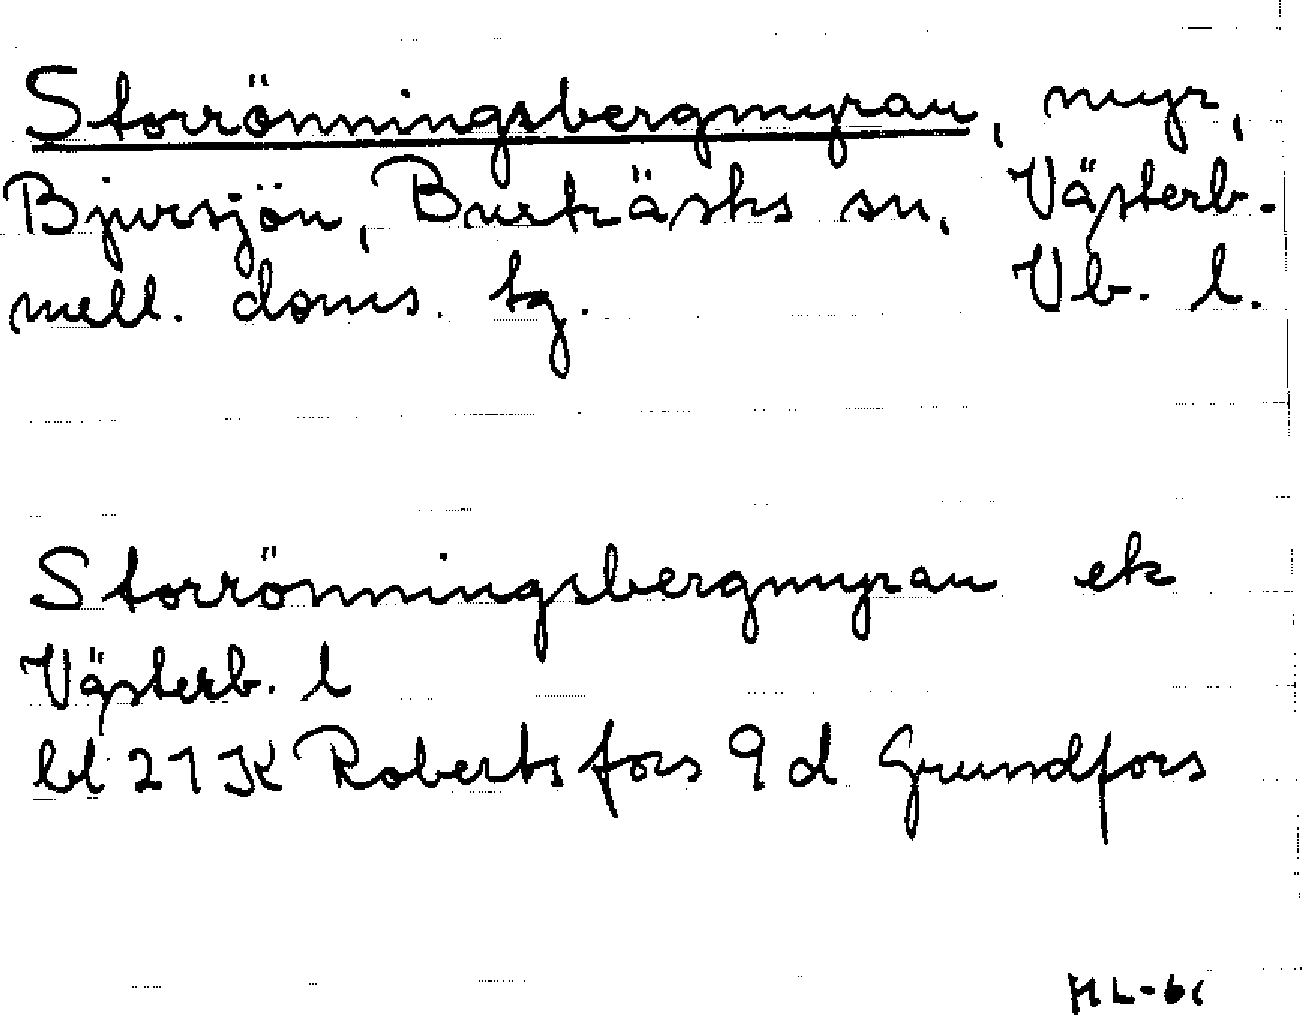 Storrönningsbergmyran, myr,
Bjursjön, Burträsks sn, Västerb.
mell. doms. tg. Vb. l.
Storrönningsbergmyran ek
Västerb. l
bl 21 K Robertsfors 9 d Grundfors